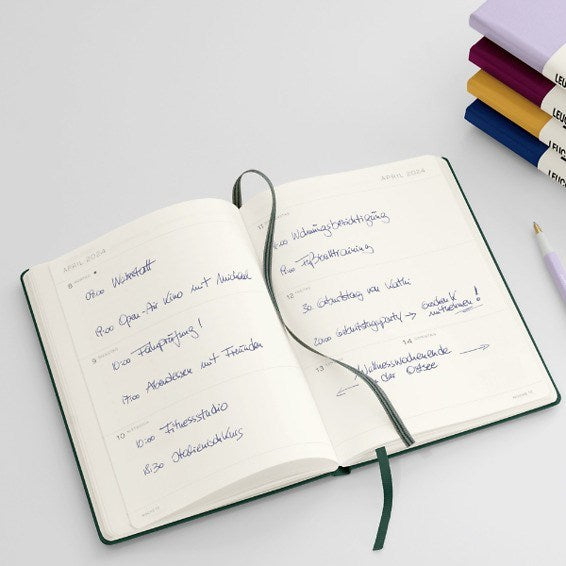 APRIL 2024
8 MONTAG
08:00 Werkstatt
19:00 Open-Air Kino mit Michael
9
10:00 Fahrprüfung!
17:00 Abendessen mit Freunden
10 MITTWOCH
10:00 Fitnessstudio
18:30 Italienischkurs
APRIL 2024
11
:00 Wohnungsbesichtigung
:00 Fußballtraining
12 FREITAG
:30 Geburtstag von Kathi
20:00 Geburtstagsparty → mitnehmen!
13
14 SONNTAG
← Wellnesswochenende →
an der Ostsee
LEUC
LEUC
LEUC
LEUC